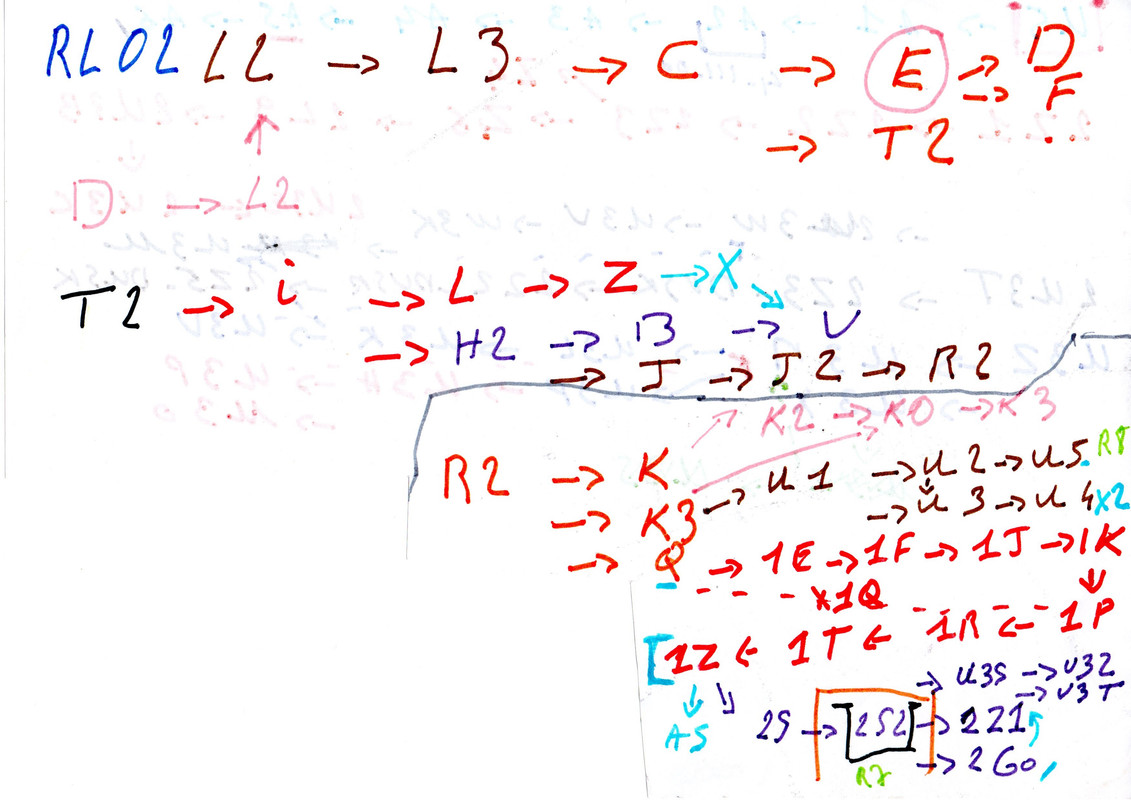 RL02 L2 → L3 → C → E → D
→ F
→ T2
D → L2
T2 → i → L → Z → X
→ H2 → B → V
→ J → J2 → R2
K2 → K0 → K3
R2 → K
→ K3 → U1 → U2 → U5 R8
→ U3 → U4 X2
→ Q → 1E → 1F → 1J → 1K
x1Q
[1Z ← 1T ← 1R ← 1P
→ U3S → U32
→ U3T
A5 2S → [2S2] → 2Z1
R7 → 2G0